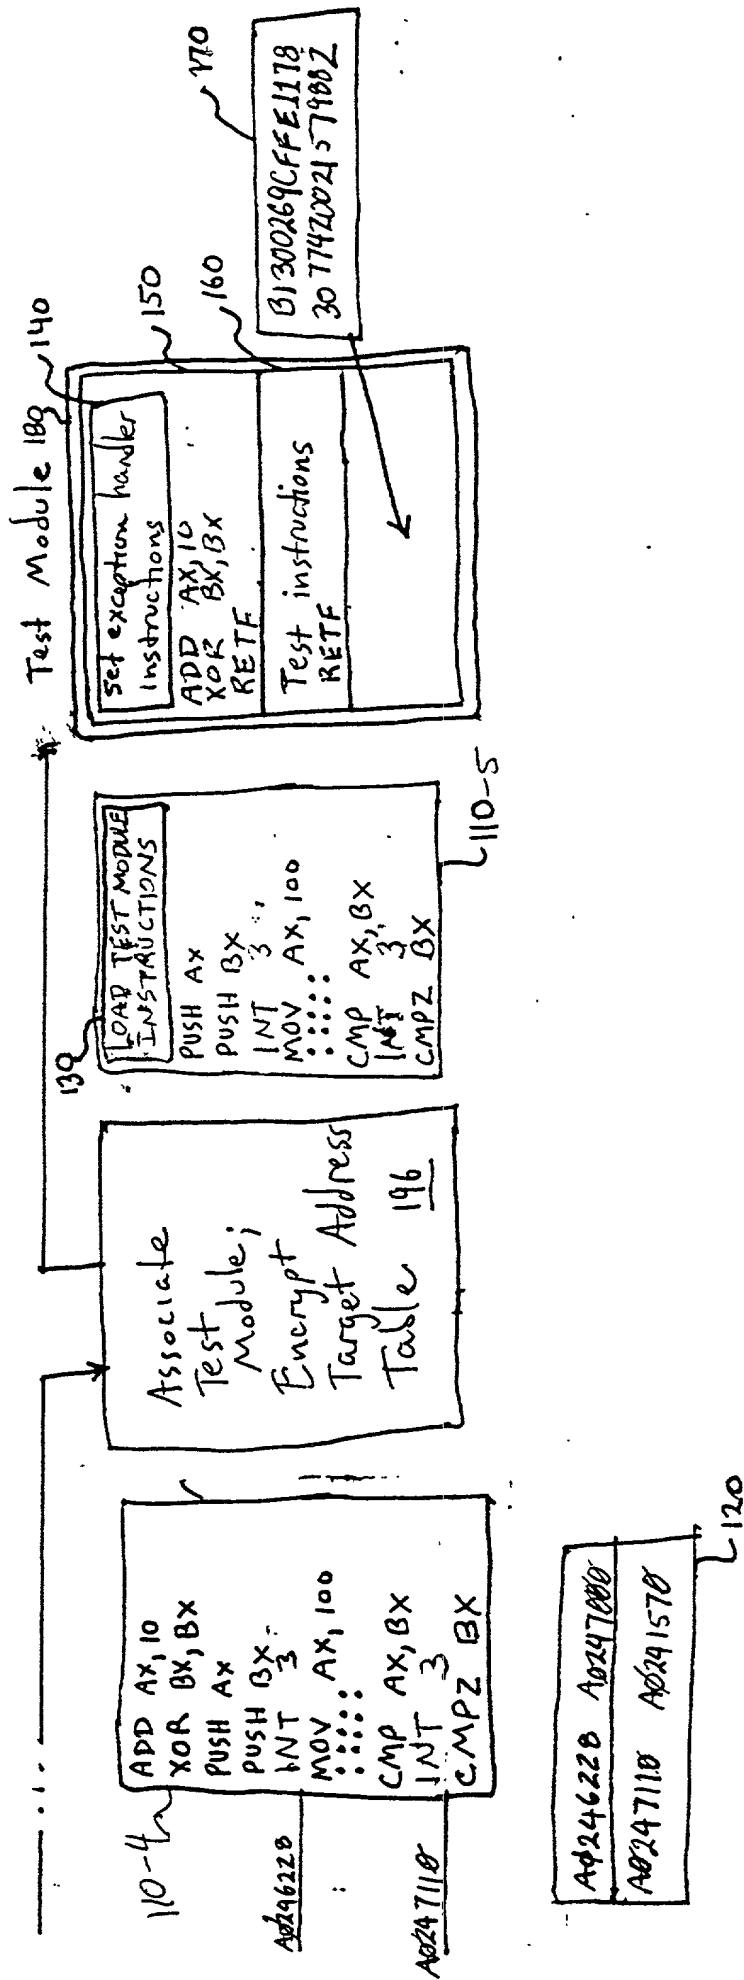 110-4
ADD AX, 10
XOR BX, BX
PUSH AX
PUSH BX
INT 3
MOV AX, 100
CMP AX, BX
INT 3
CMPZ BX
A0246228
A0247110
A0246228 A0247000
A0247110 A0241570
120
Associate
Test
Module;
Encrypt
Target Address
Table 196
130
LOAD TEST MODULE
INSTRUCTIONS
PUSH AX
PUSH BX
INT 3
MOV AX, 100
CMP AX, BX
INT 3
CMPZ BX
110-5
Test Module 180
140
Set exception handler
instructions
150
ADD AX, 10
XOR BX, BX
RETF
160
Test instructions
RETF
170
B1300269CFFE1178